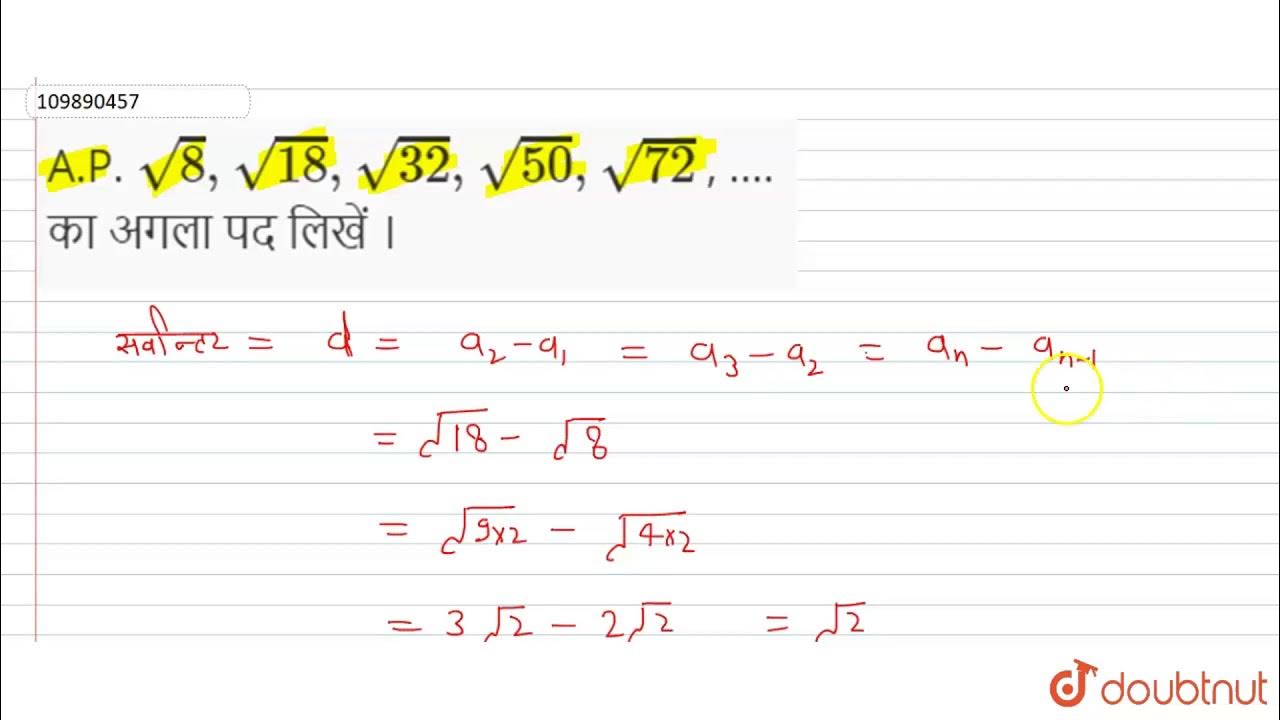 109890457
A.P. √8, √18, √32, √50, √72 , ....
का अगला पद लिखें ।
सर्वान्तर = d = a₂ - a₁ = a₃ - a₂ = aₙ - aₙ₋₁
= √18 - √8
= √9x2 - √4x2
= 3√2 - 2√2 = √2
doubtnut